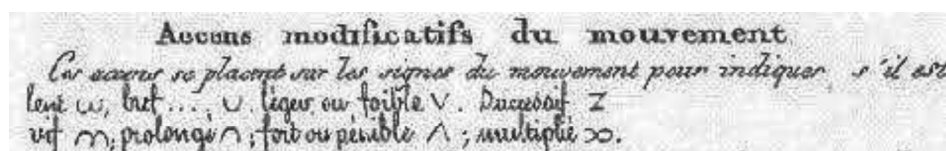 Accens modificatifs du mouvement
Ces accens se placent sur les signes du mouvement pour indiquer s'il est
lent ω, bref.... ∪, léger ou foible ∨. Successif Z
vif m, prolongé ∩; fort ou pénible ∧; multiplié ∞.